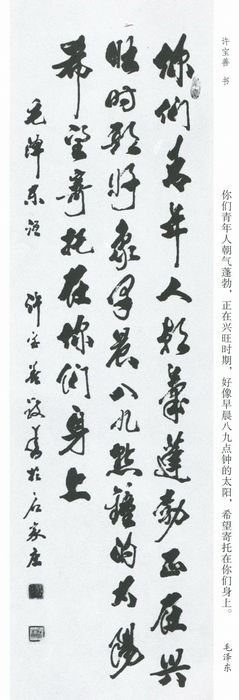 许宝善 书
你们青年人朝气蓬勃,正在兴旺时期,好像早晨八九点钟的太阳,希望寄托在你们身上。
毛泽东
你们青年人朝氣蓬勃正在興
旺时期好象早晨八九點鐘的太陽
希望寄托在你们身上
毛澤东语 许宝善敬書於石家庄